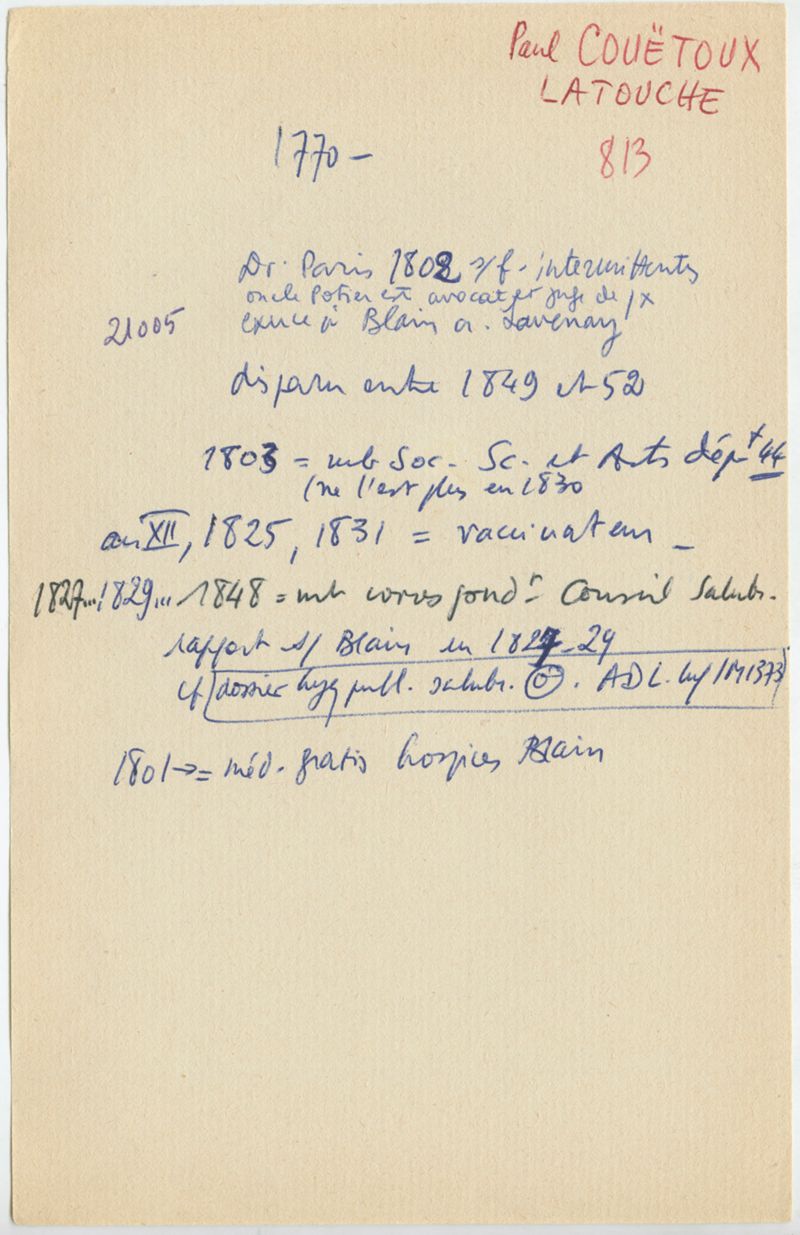 Paul COUËTOUX
LATOUCHE
813
1770 -
Dr. Paris 1802 s/ f. intermittentes
oncle Potier est avocat et juge de px
21005
exerce à Blain a. Lavenay
disparu entre 1849 et 52
1803 = mb Soc. Sc. et Arts dépt 44
(ne l'est plus en 1830
an XII, 1825, 1831 = vaccinateur -
1827... 1829... 1848 = mb correspondt Conseil Salubr.
rapport s/ Blain en 1827-29
cf dossier hyg publ. salubr. . ADL. 1M1373
1801 → = méd. gratis hospices Blain